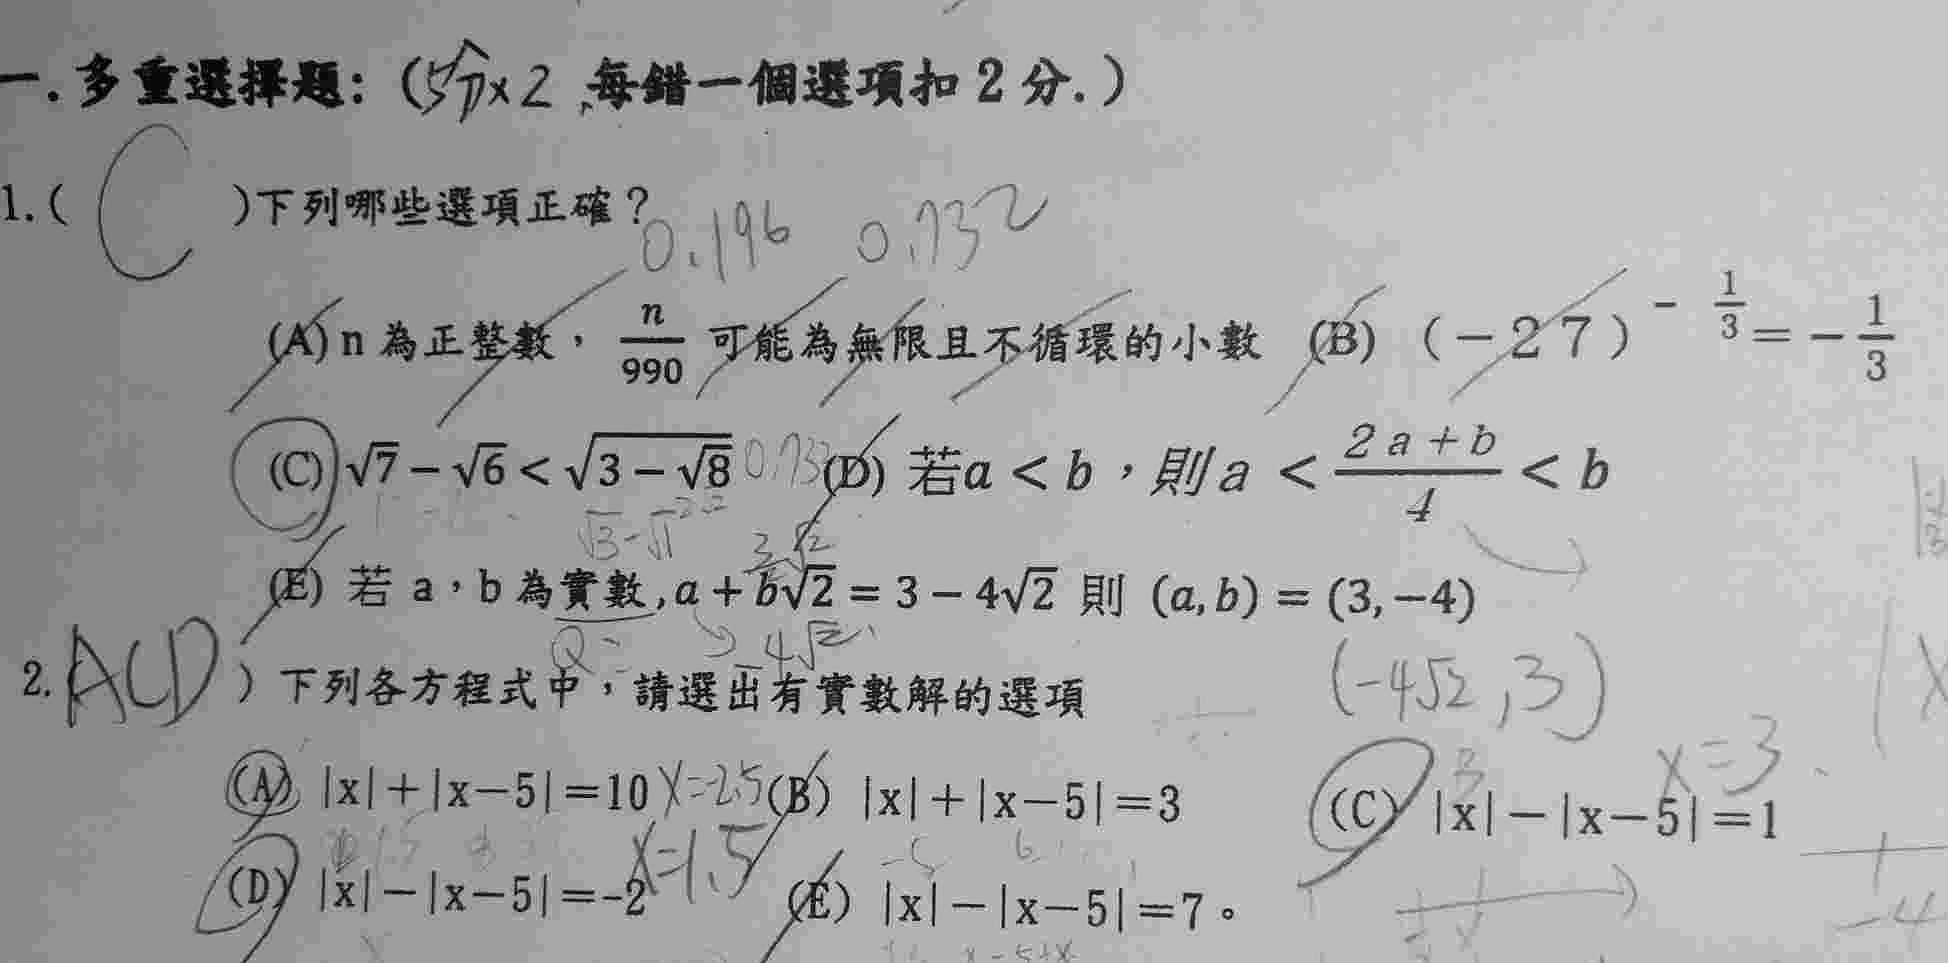 一.多重選擇題:(5分×2,每錯一個選項扣 2 分.)
1.( C )下列哪些選項正確?
0.196 0.732
(A) n 為正整數,n/990 可能為無限且不循環的小數 (B) (-27)^(-1/3) = -1/3
(C) √7 - √6 < √(3 - √8) 0.732 (D) 若a < b,則 a < (2a+b)/4 < b
√3-√1
(E) 若 a,b 為實數,a + b√2 = 3 - 4√2 則 (a,b) = (3,-4)
-4√2
(-4√2,3)
2. ACD ) 下列各方程式中,請選出有實數解的選項
(A) |x|+|x-5|=10 x=-2.5 (B) |x|+|x-5|=3 (C) |x|-|x-5|=1 x=3
(D) |x|-|x-5|=-2 x=1.5 (E) |x|-|x-5|=7。
-4